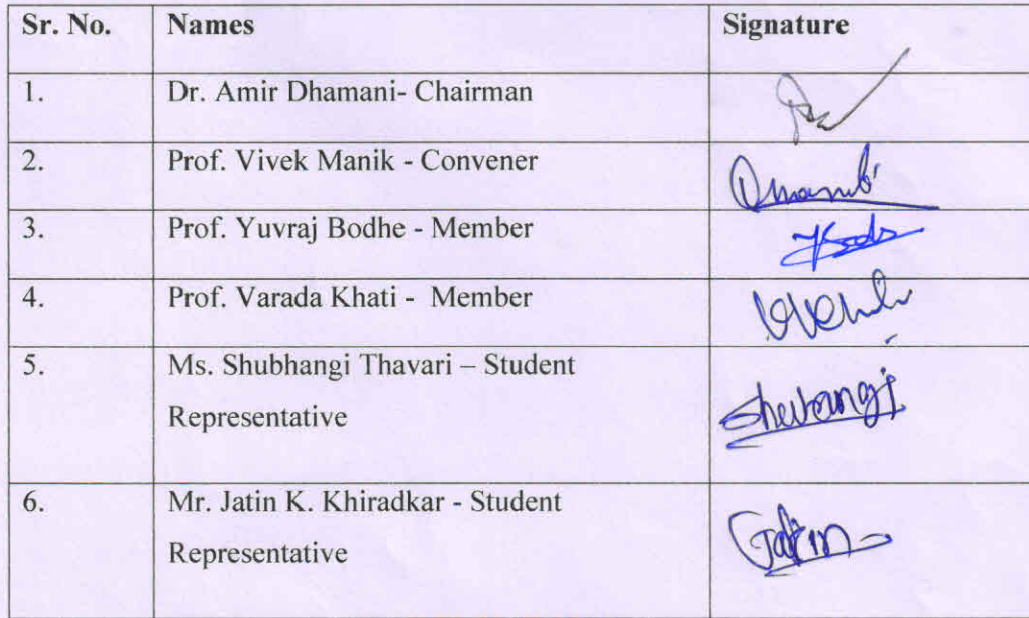 Sr. No. Names Signature
1. Dr. Amir Dhamani- Chairman
2. Prof. Vivek Manik - Convener
3. Prof. Yuvraj Bodhe - Member
4. Prof. Varada Khati - Member
5. Ms. Shubhangi Thavari – Student
Representative Shubangi
6. Mr. Jatin K. Khiradkar - Student
Representative Jatin